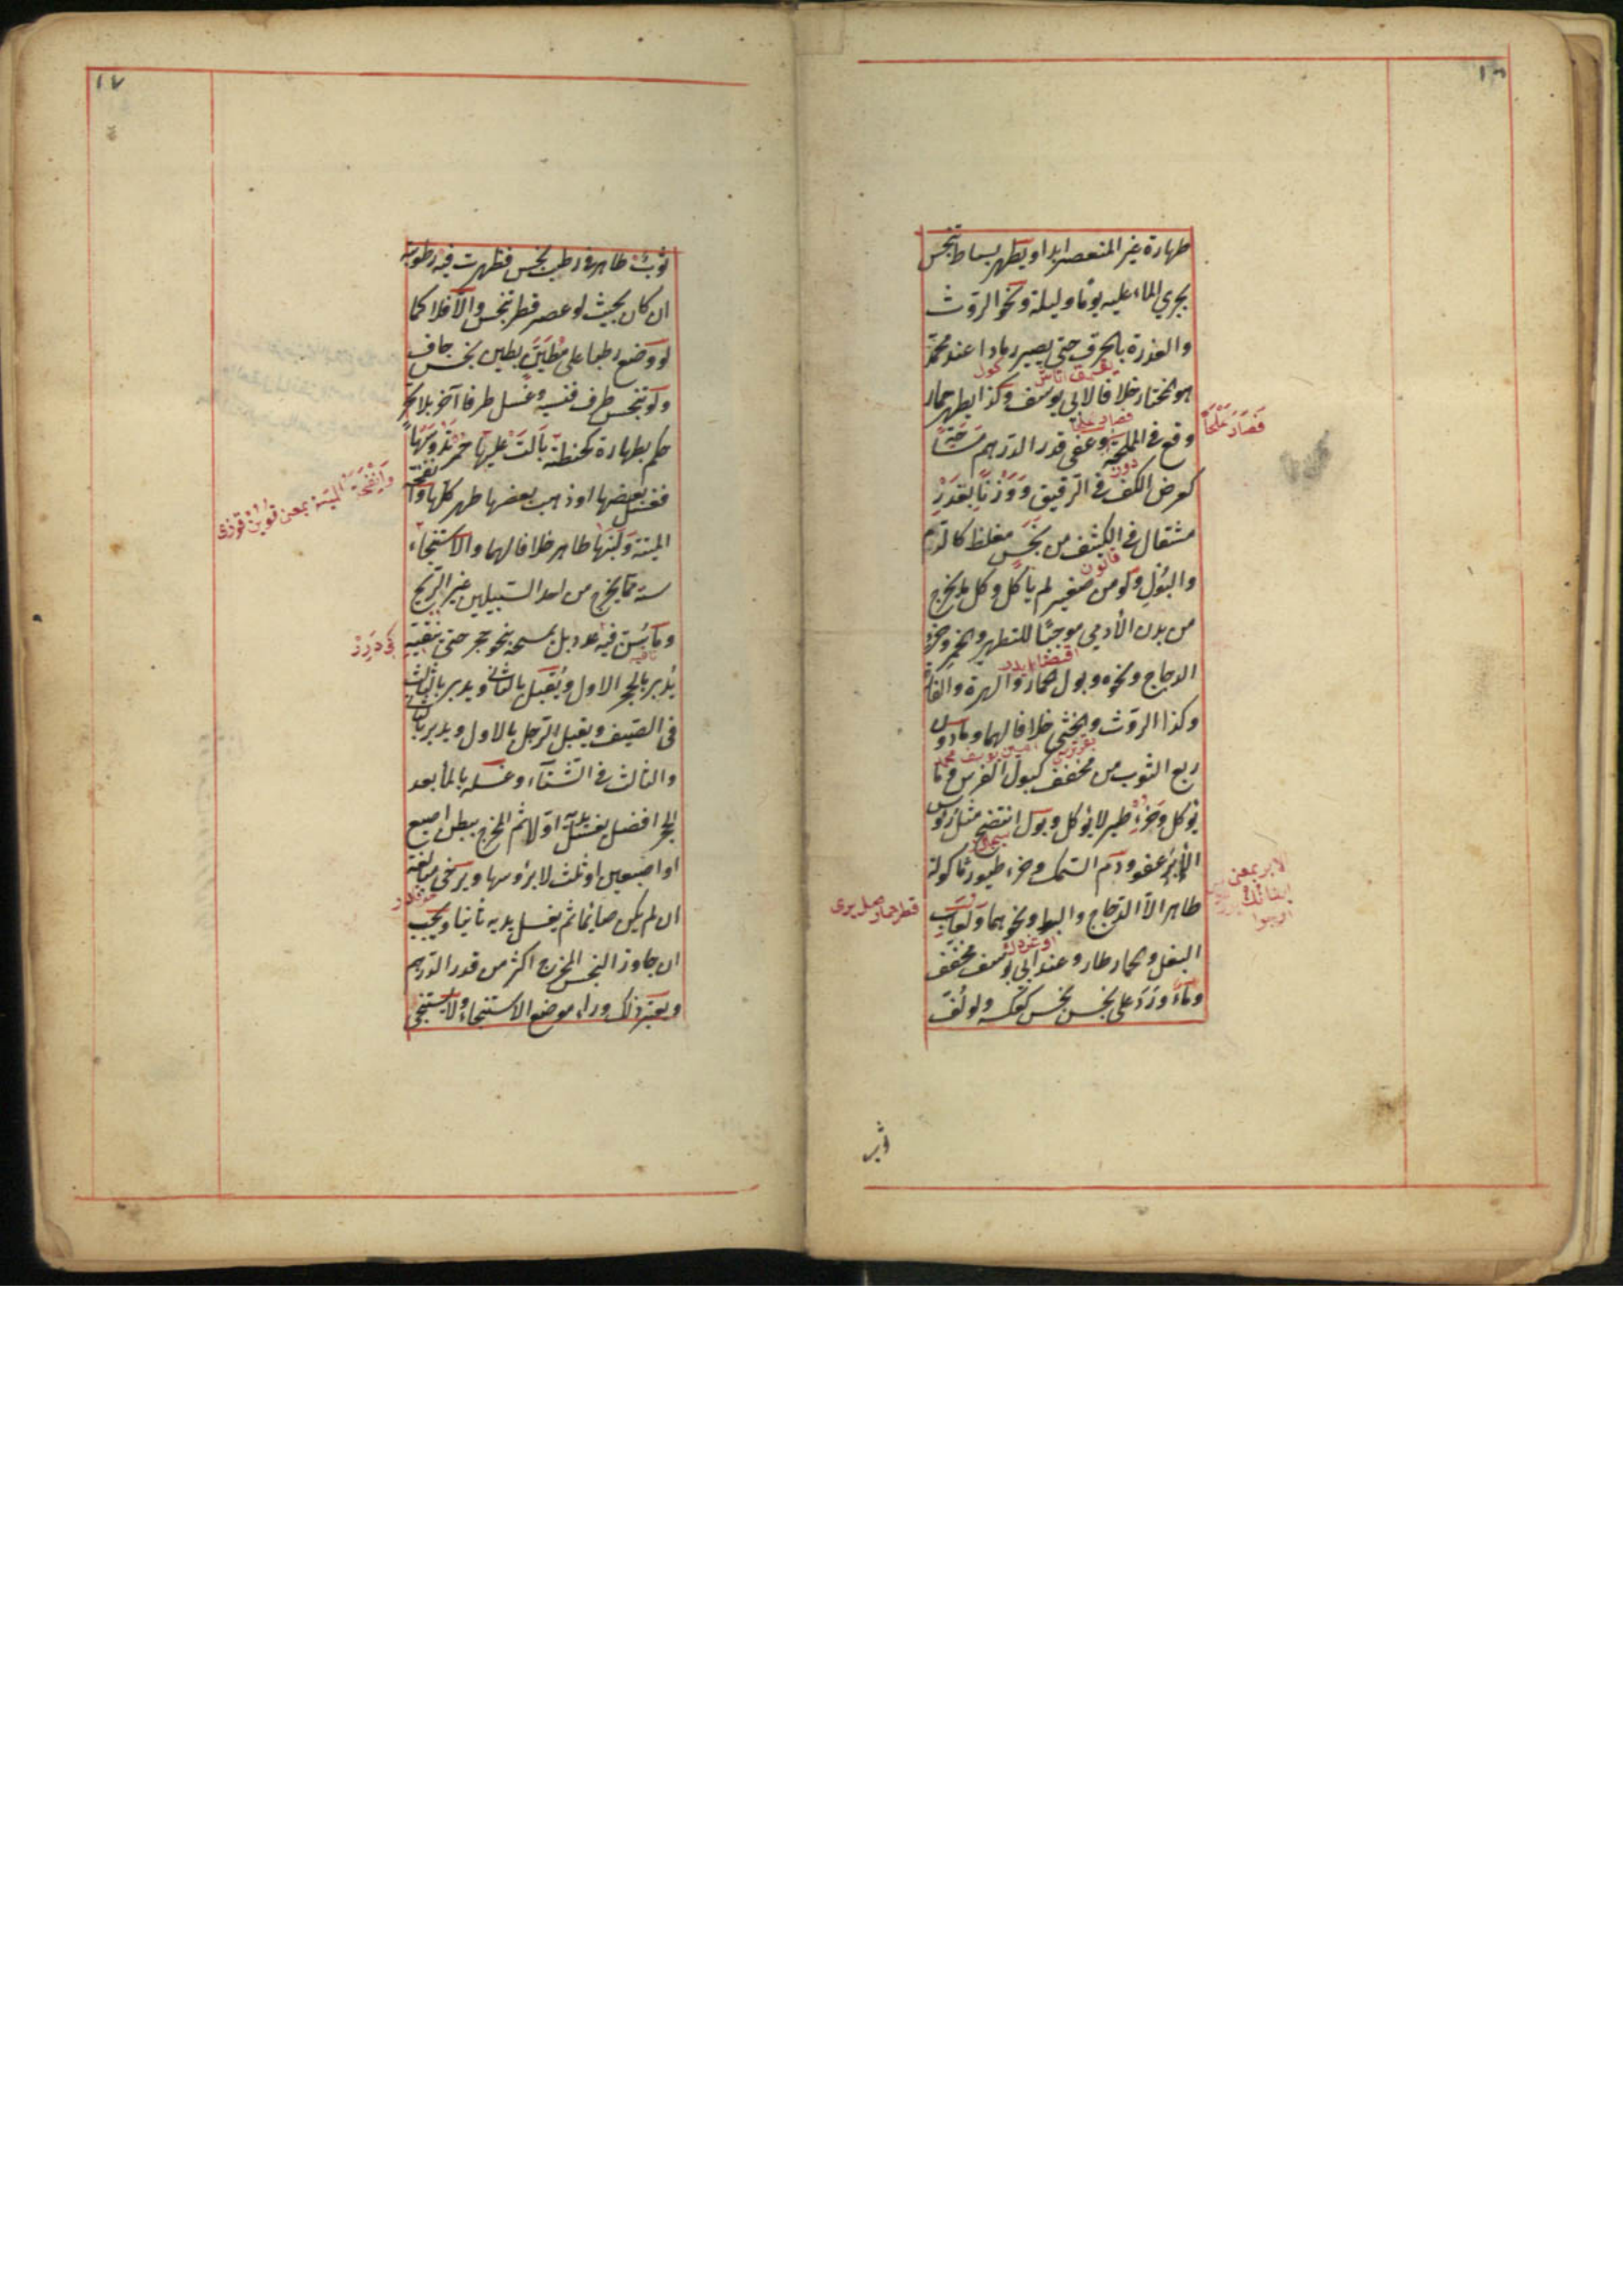 ١٦
طهارة غير المنعصر ابدا ويطهر بساط تنجس
بجري الماء عليه يوما وليلة ونحو الروث
والعذرة بالحرق حتى يصير رمادا عند محمد
هو المختار خلافا لابي يوسف وكذا يطهر حمار
وقع في المملحة وعفي قدر الدرهم مساحة
فصار ملحا
كعرض الكف في الرقيق ووزنا بقدر
مثقال في الكثيف من نجس مغلظ كالدم
والبول ولو من صغير لم يأكل وكل ما يخرج
من بدن الآدمي موجبا للتطهير والخمر وخرء
الدجاج ونحوه وبول الحمار والهرة والفأرة
وكذا الروث والخثي خلافا لهما وما دون
ربع الثوب من مخفف كبول الفرس وما
يؤكل وخرء طير لا يؤكل وبول انتضح مثل رؤس
الابر عفو ودم السمك وخرء طيور مأكولة
الابر بمعنى
طاهر الا الدجاج والبط ونحوهما ولعاب
البغل والحمار طاهر وعند ابي يوسف مخفف
وماء ورد على نجس نجس كعكسه ولو لف
١٧
ثوب طاهر في رطب نجس فظهرت فيه رطوبة
ان كان بحيث لو عصر قطر تنجس والا فلا كما
لو وضع رطبا على مطين بطين نجس جاف
ولو تنجس طرف فنسيه وغسل طرفا آخر بلا تحر
حكم بطهارة كحنطة بالت عليها حمر تدوسها
فغسل بعضها او ذهب بعضها طهر كلها وانفحة
وانفحة الميتة بمعنى
الميتة ولبنها طاهر خلافا لهما والاستنجاء
سنة مما يخرج من احد السبيلين غير الريح
وما سن فيه عدد بل يمسحه بنحو حجر حتى ينقيه
يدبر بالحجر الاول ويقبل بالثاني ويدبر بالثالث
في الصيف ويقبل الرجل بالاول ويدبر بالثاني
والثالث في الشتاء وغسله بالماء بعد
الحجر افضل يغسل يديه اولا ثم المخرج ببطن اصبع
او اصبعين او ثلث لا برؤسها ويرخي مبالغة
ان لم يكن صائما ثم يغسل يديه ثانيا ويجب
ان جاوز النجس المخرج اكثر من قدر الدرهم
ويعتبر ذلك وراء موضع الاستنجاء ولا يستنجي